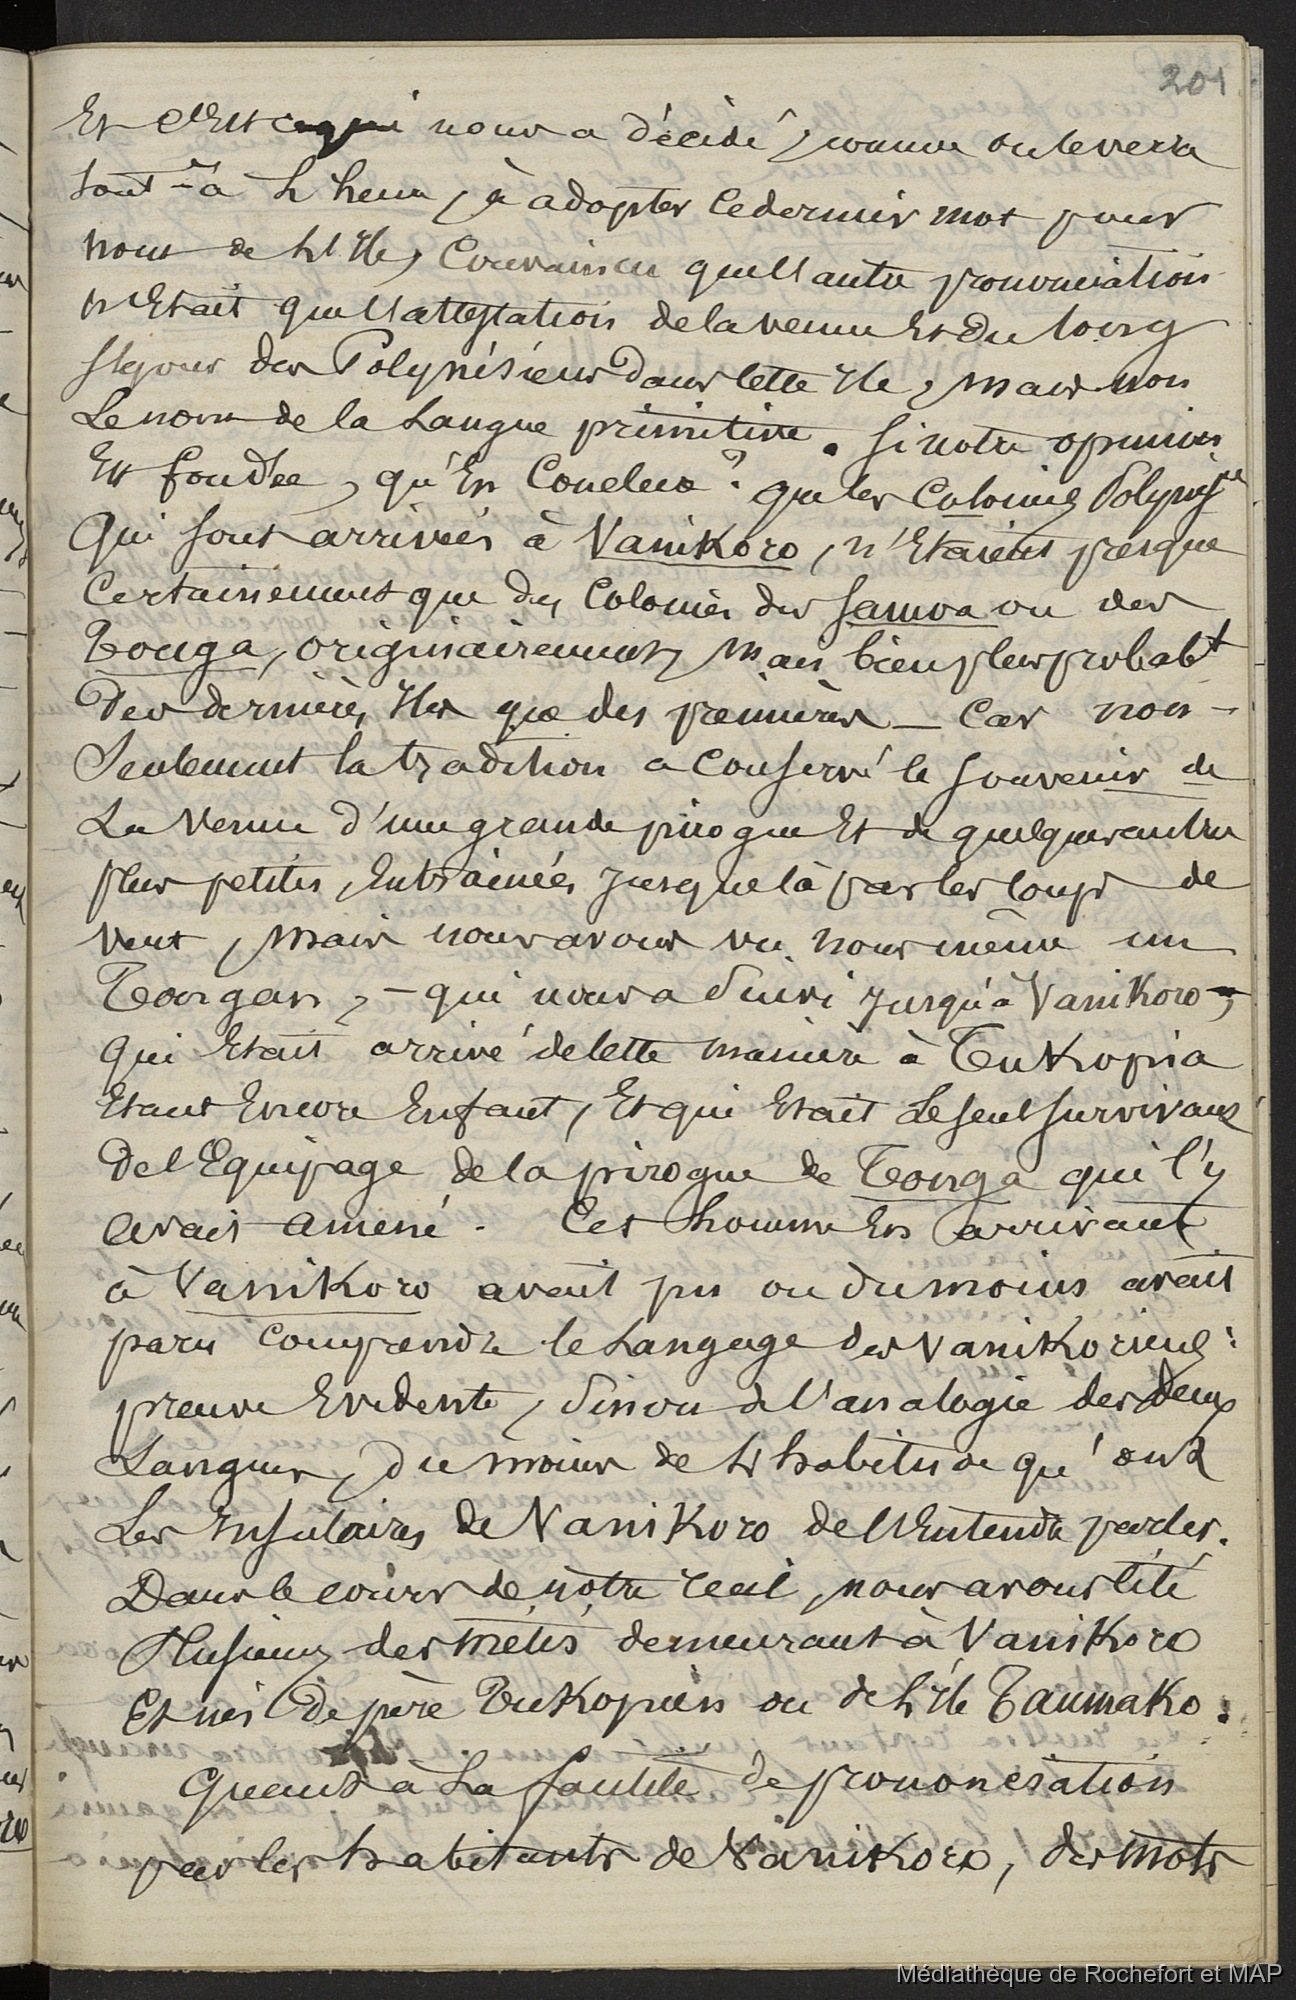 201
Et c'est ce qui nous a décidé, comme on le verra
tout-à l'heure, à adopter ce dernier mot pour
nom de l'île, convaincu que l'autre prononciation
n'était que l'attestation de la venue et du long
séjour des Polynésiens dans cette île, mais non
le nom de la langue primitive. Si notre opinion
est fondée, qu'en conclure? que les colonies Polynésnes
qui sont arrivées à Vanikoro, n'étaient presque
certainement que des colonies des Samoa ou des
Tonga, originairement, mais bien plus probabt
des dernières îles que des premières – car non-
seulement la tradition a conservé le souvenir de
la venue d'une grande pirogue et de quelques autres
plus petites, entrainées jusque là par les coups de
vent, mais nous avons vu nous même un
Tongan, – qui nous a suivi jusqu'à Vanikoro –,
qui était arrivé de cette manière à Tukopia
étant encore enfant, et qui était le seul survivant
de l'équipage de la pirogue de Tonga qui l'y
avait amené. Cet homme en arrivant
à Vanikoro avait pu ou du moins avait
paru comprendre le langage des Vanikoriens:
preuve évidente, sinon de l'analogie des deux
langues, du moins de l'habitude qu'ont
les insulaires de Vanikoro de l'entendre parler.
Dans le cours de notre récit, nous avons cité
plusieurs des métis demeurant à Vanikoro
et nés de père Tukopien ou de l'île Taumako:
Quant à la facilité de prononciation
par les habitants de Vanikoro, des mots
Médiathèque de Rochefort et MAP